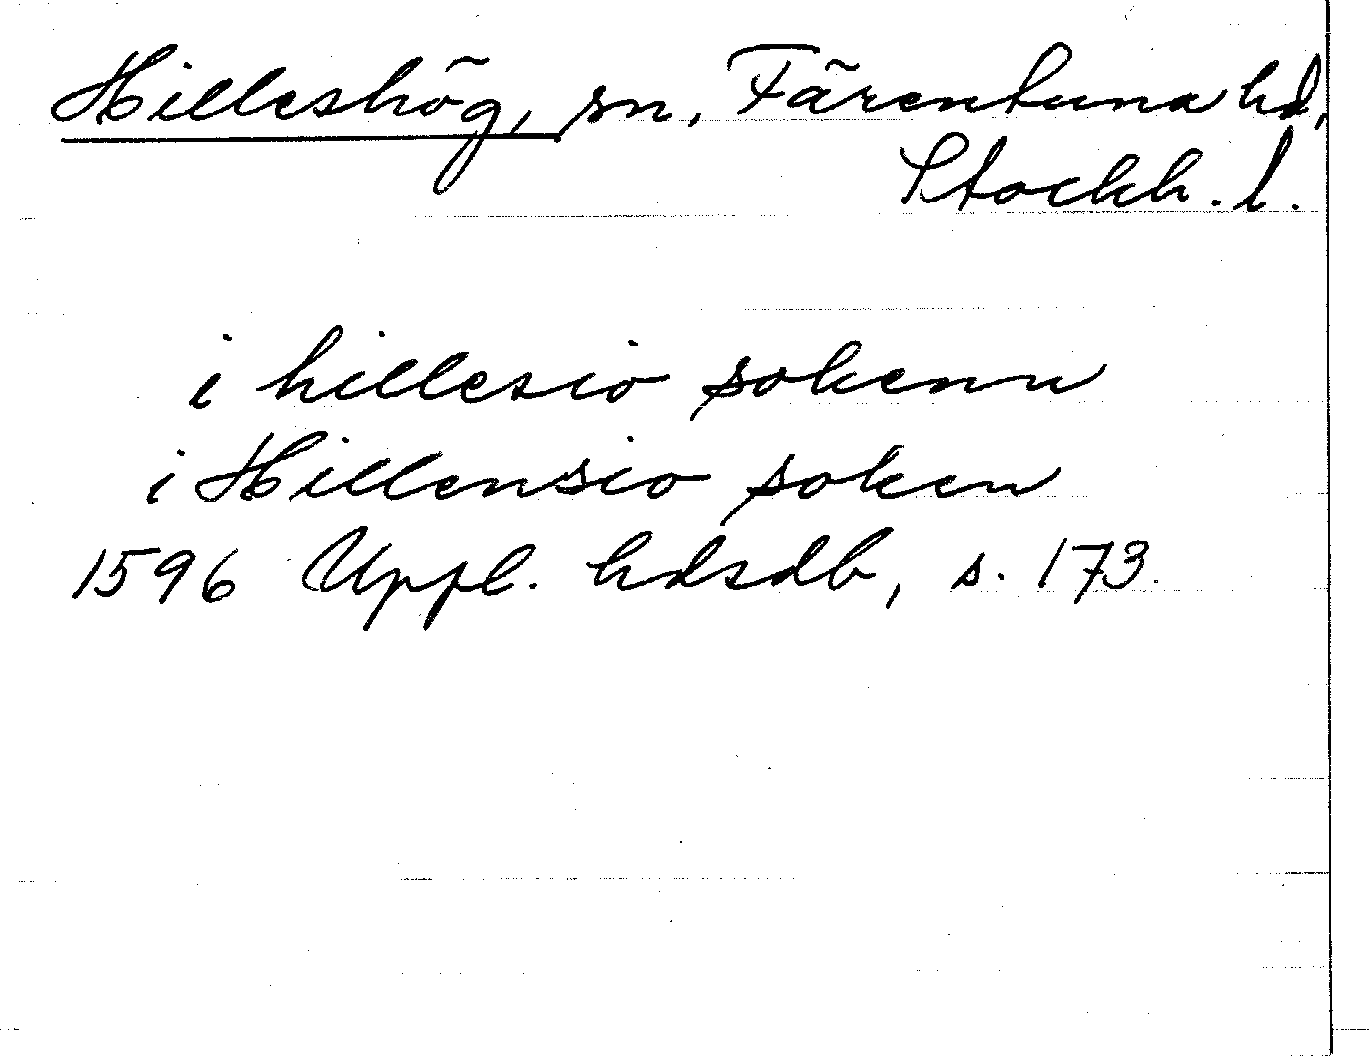 Hilleshög, sn, Färentuna hd,
Stockh. l.
i hillesio sokenn
i Hillensio soken
1596 Uppl. hdsdb, s. 173.